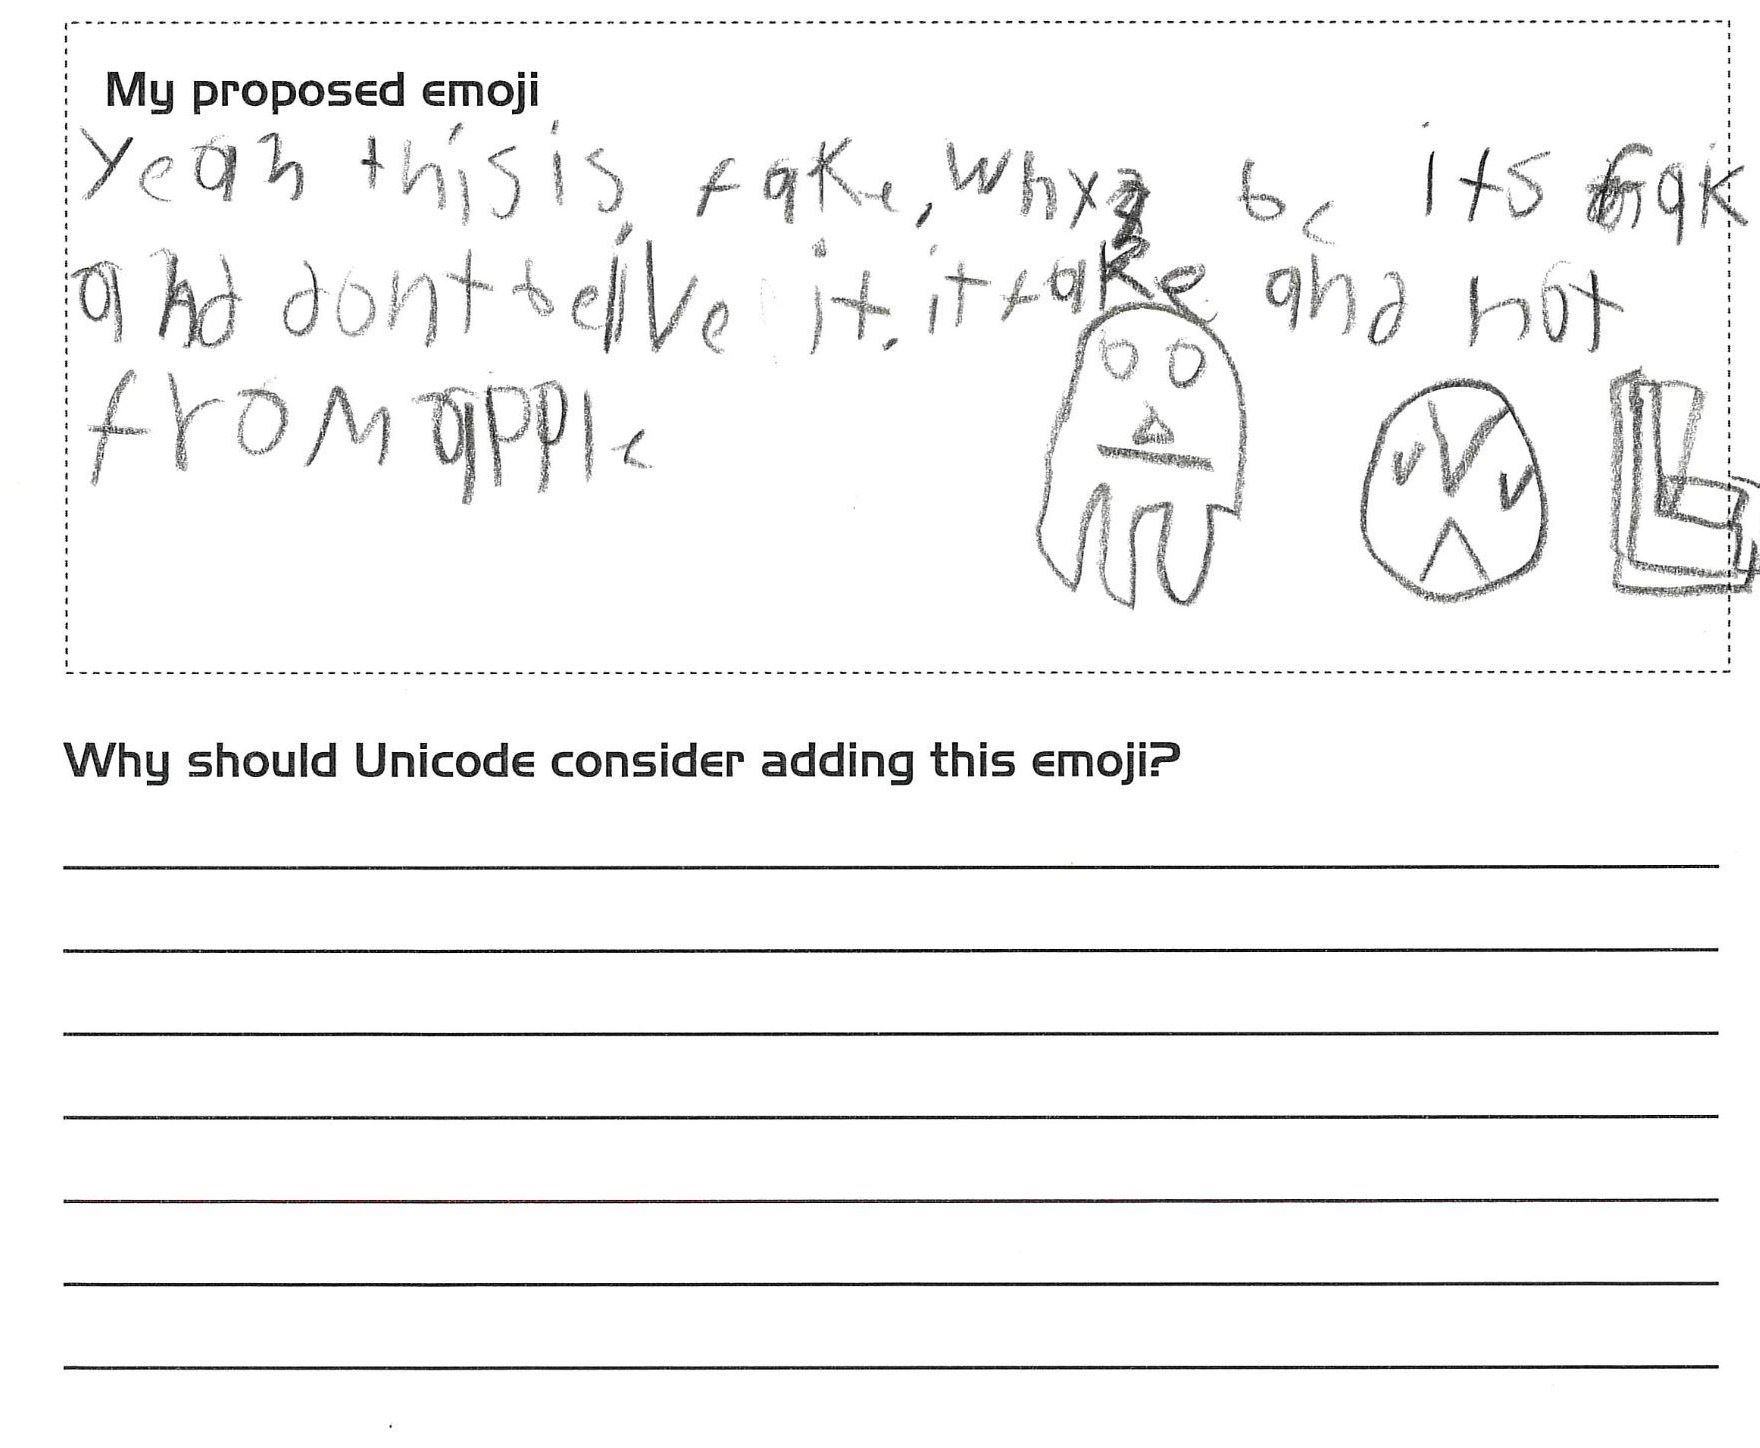 My proposed emoji
Yeah this is fake, why bc its fak
and dont belive it. it fake and not
from apple
Why should Unicode consider adding this emoji?